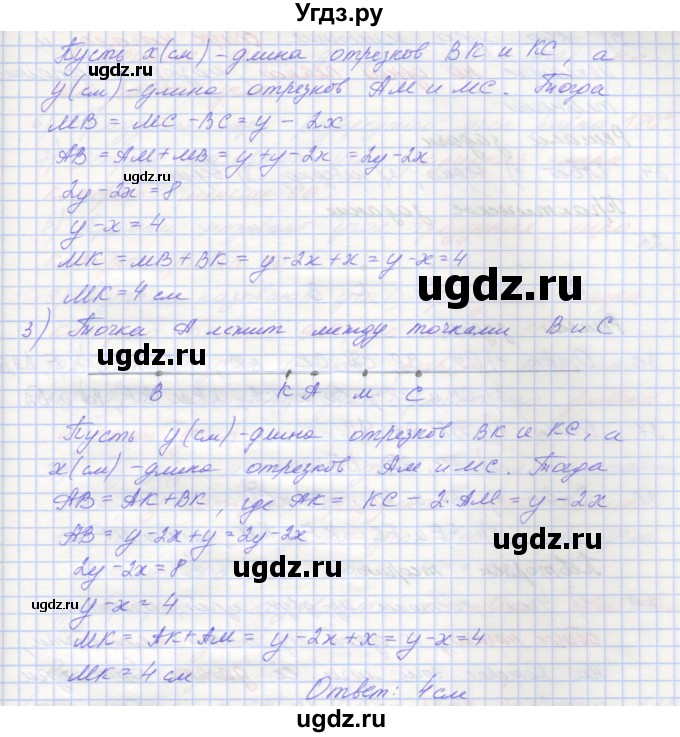 Угдз.ру
Пусть x(см) - длина отрезков BK и KC, а
y(см) - длина отрезков AM и MC. Тогда
MB = MC - BC = y - 2x
AB = AM + MB = y + y - 2x = 2y - 2x
2y - 2x = 8
y - x = 4
MK = MB + BK = y - 2x + x = y - x = 4
MK = 4 см
3) Точка A лежит между точками B и C
B K A M C
Пусть y(см) - длина отрезков BK и KC, а
x(см) - длина отрезков AM и MC. Тогда
AB = AK + BK, где AK = KC - 2·AM = y - 2x
AB = y - 2x + y = 2y - 2x
2y - 2x = 8
y - x = 4
MK = AK + AM = y - 2x + x = y - x = 4
MK = 4 см
Ответ: 4 см
ugdz.ru
ugdz.ru
ugdz.ru
ugdz.ru
ugdz.ru
ugdz.ru
ugdz.ru
ugdz.ru
ugdz.ru
ugdz.ru